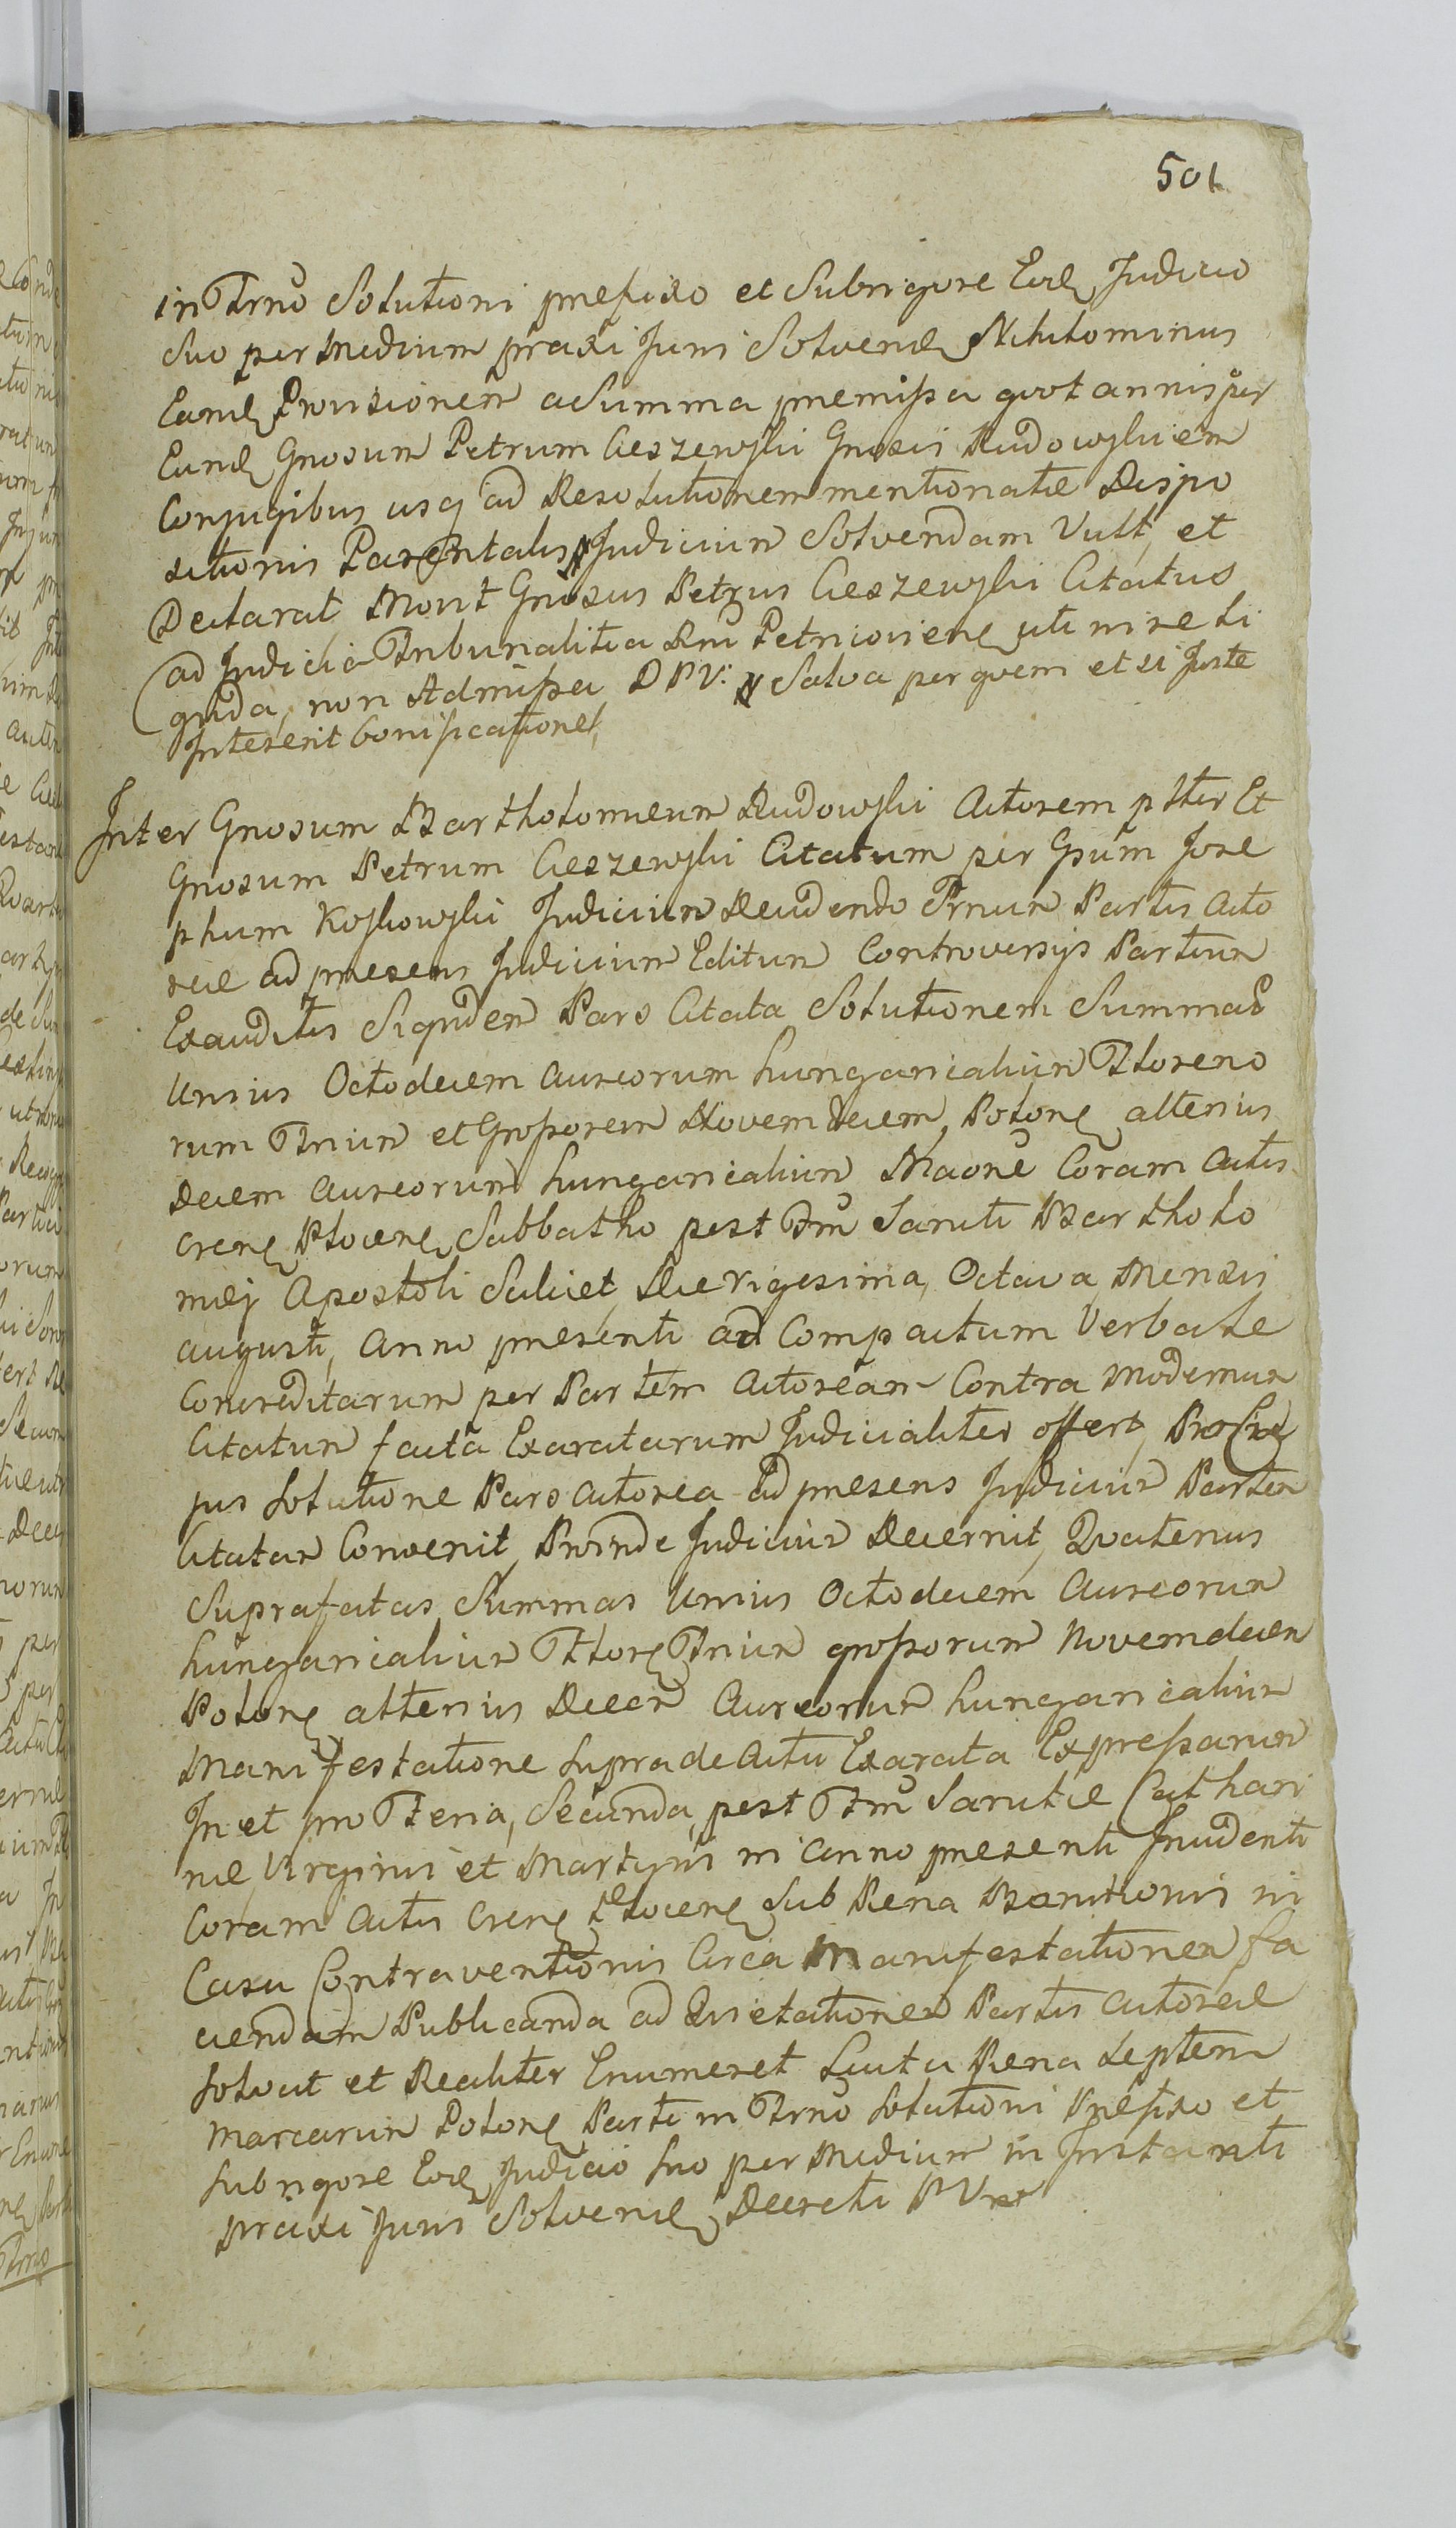 501
in Trno Solutioni prefixo et Subrigore Eode Judicio
Suo per Medium praxi Juris Solvend Nihilominus
Eand Provisionem a Summa premissa quot annis per
Eund Gnosum Petrum Cieszewski Gnosis Rudowskiem
Conjugibus usq ad Resolutionem mentionatæ Dispo
sitionis Parentalis Judicium Solvendam Vult, et
Declarat, Mout Gnosus Petrus Cieszewski Citatus
ad Judicia Tribunalitia Rni Petricovien uti in re li
quida, non Admissa DPV: Salva per quem et si Juste
Intererit bonificatione,
Inter Gnosum Bartholomeum Rudowski Actorem pster Et
Gnosum Petrum Cieszewski Citatum per Gsum Jose
phum Koskowski Judicium Decidendo Trnum Partis Acto
reæ ad presens Judicium Editum Controversijs Partium
Exauditis Siquidem Pars Citata Solutionem Summae
Unius Octodecem Aureorum hungaricalium Floreno
rum Trium et Grossorem Novemdecem, Polone alterius
Decem Aureorum hungaricalium Maone Coram Actis
Cren Plocen Sabbatho post Fm Sancti Bartholo
mæj Apostoli Scilicet, Die Vigesima, Octava, Mensis
augusti, Anno presenti ad Compactum Verbale
Concreditarum per Partem Actoream Contra Modernum
Citatum facta Exaratarum Judicialiter offert, Pro
jus Solutione Pars Actorea ad presens Judicium Partem
Citatam Convenit, Proinde Judicium Decernit, Quatenus
Suprafatas Summas Unius Octodecem Aureorum
hungaricalium Flore Trium grossorum Novemdecem
Polone alterius Decem Aureorum hungaricalium
Manifestatione Supra de Actu Exarata Expressarum
In et pro Feria, Secunda, post Fm Sanctæ Cathari
næ Virginis et Martyris in Anno presenti Incidenti
Coram Actis Cren Plocen Sub Pena Banitionis in
Casu Contraventionis Circa Manifestationem fa
ciendam Publicanda ad Quietationem Partis Actoreæ
Solvat et Realiter Enumeret Luita Pena Septem
Marcarum Polone Parti in Trno Solutioni Prefixo et
Subrigore Eode Judicio Suo per Medium in Instanti
praxi Juris Solvend Decreti PV